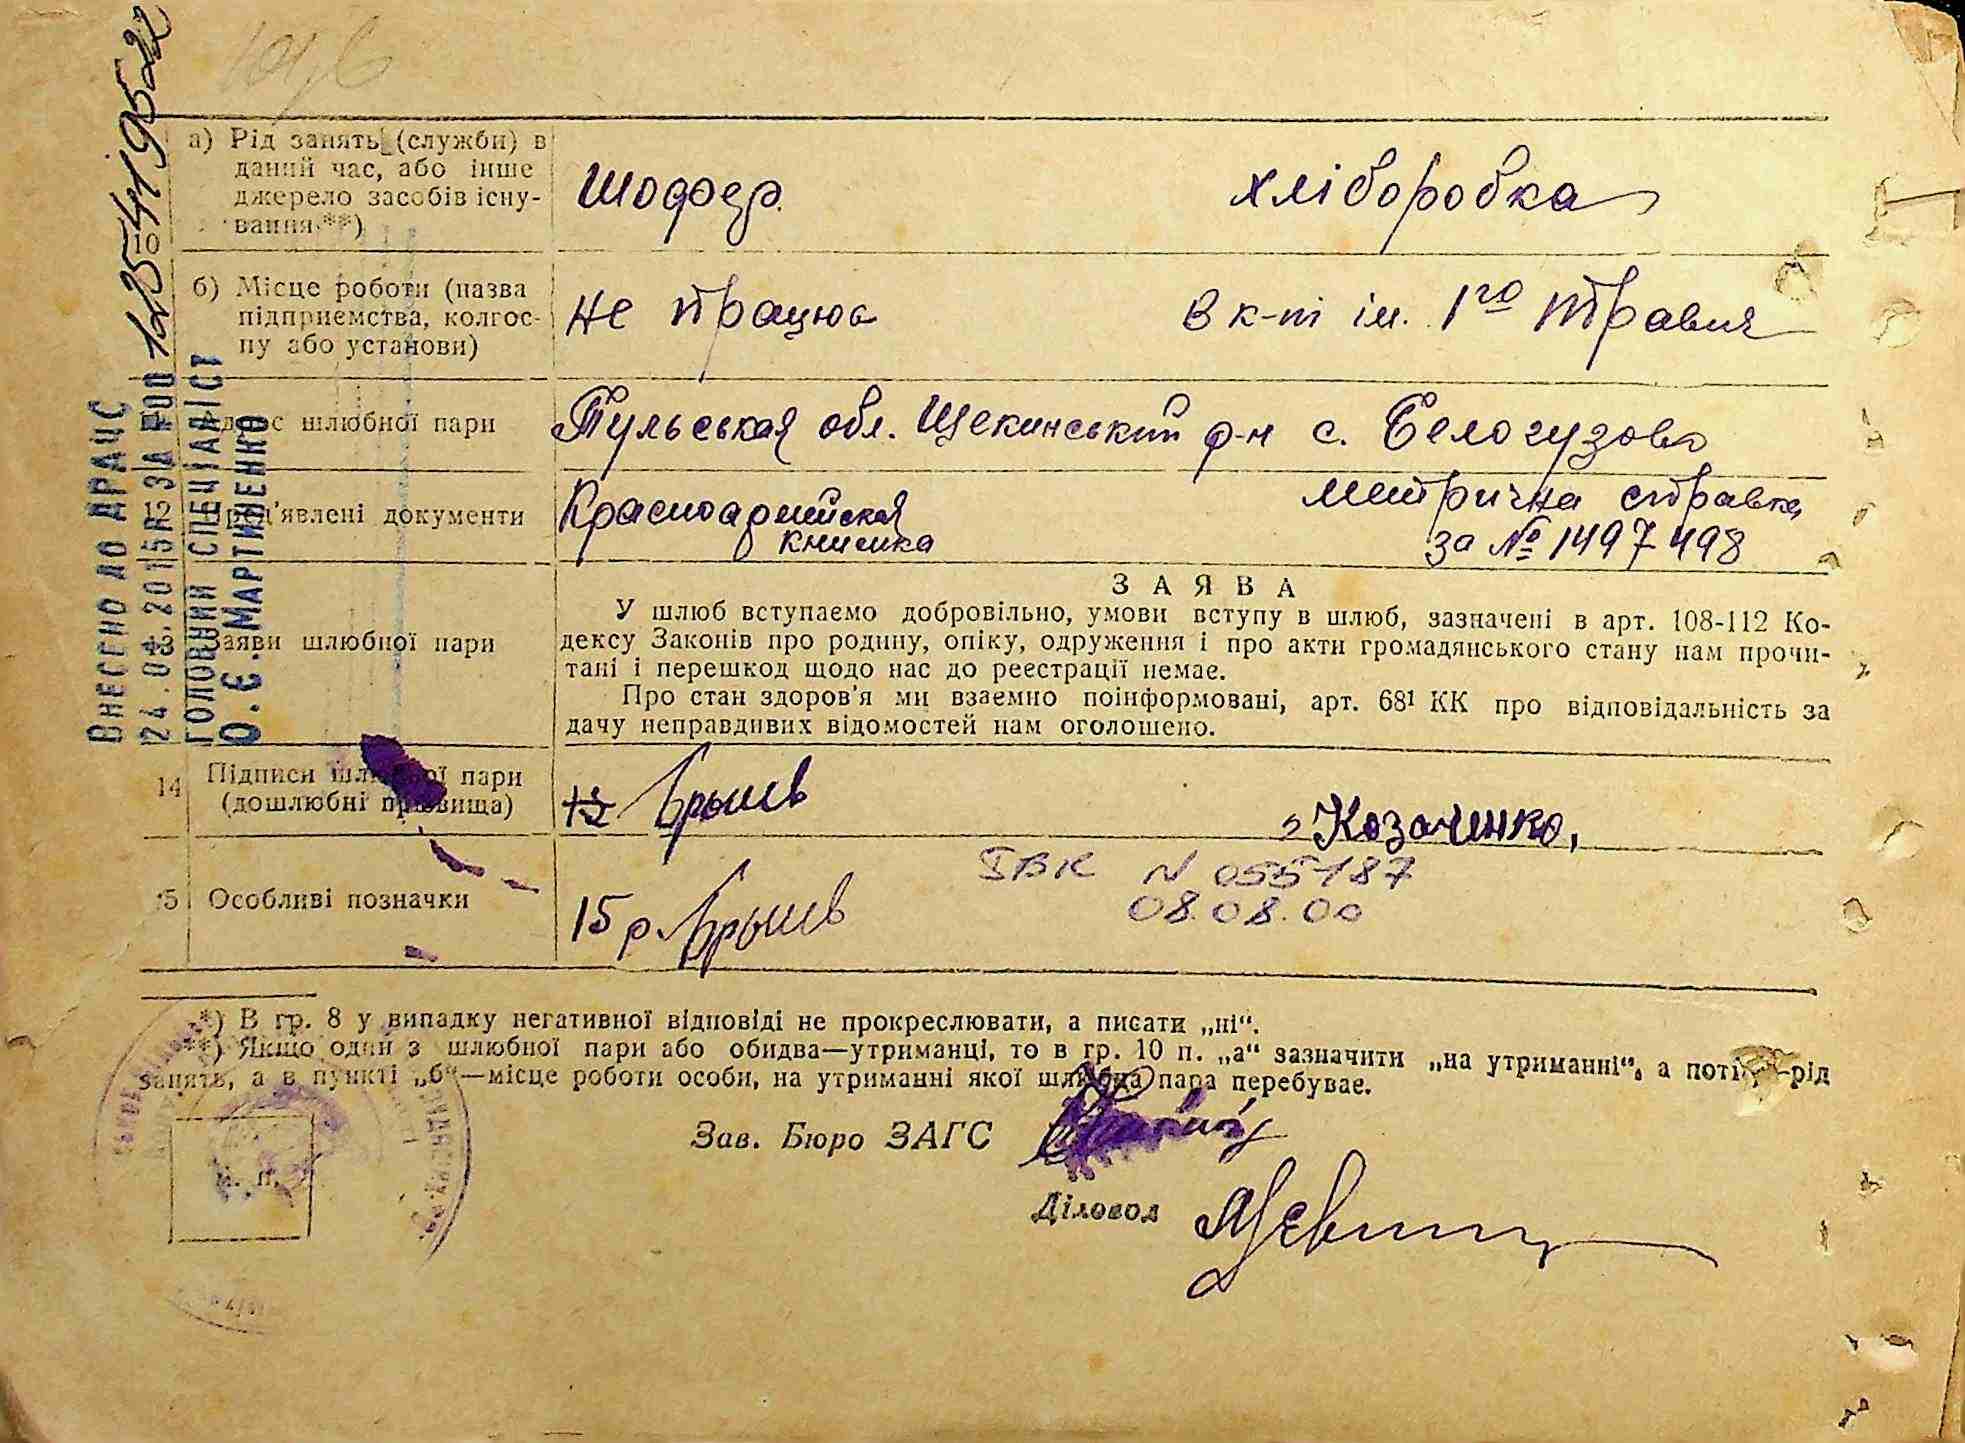 а) Рід занять (служби) в
даний час, або інше
джерело засобів існу-
вання **)
10
Шофер.
хліборобка
б) Місце роботи (назва
підприємства, колгос-
пу або установи)
не працює
в к-ті ім. 1го Травня
шлюбної пари
Тульськая обл. Щекинський р-н с. Белогузово
12 Пред'явлені документи
Красноармійская
книжка
метрична справка
за № 1497498
Заяви шлюбної пари
ЗАЯВА
У шлюб вступаємо добровільно, умови вступу в шлюб, зазначені в арт. 108-112 Ко-
дексу Законів про родину, опіку, одруження і про акти громадянського стану нам прочи-
тані і перешкод щодо нас до реєстрації немає.
Про стан здоров'я ми взаємно поінформовані, арт. 68¹ КК про відповідальність за
дачу неправдивих відомостей нам оголошено.
14 Підписи шлюбної пари
(дошлюбні прізвища)
Козаченко,
15 Особливі позначки
15 р.
ІВК N 055187
08.08.00
*) В гр. 8 у випадку негативної відповіді не прокреслювати, а писати „ні“.
**) Якщо один з шлюбної пари або обидва—утриманці, то в гр. 10 п. „а“ зазначити „на утриманні“, а потім—рід
занять, а в пункті „б“—місце роботи особи, на утриманні якої шлюбна пара перебуває.
Зав. Бюро ЗАГС
Діловод
М. П.
Внесено до ДРАЦС
24.04.2015р ЗА №00 12541952
ГОЛОВНИЙ СПЕЦІАЛІСТ
О. Є. Мартиненко